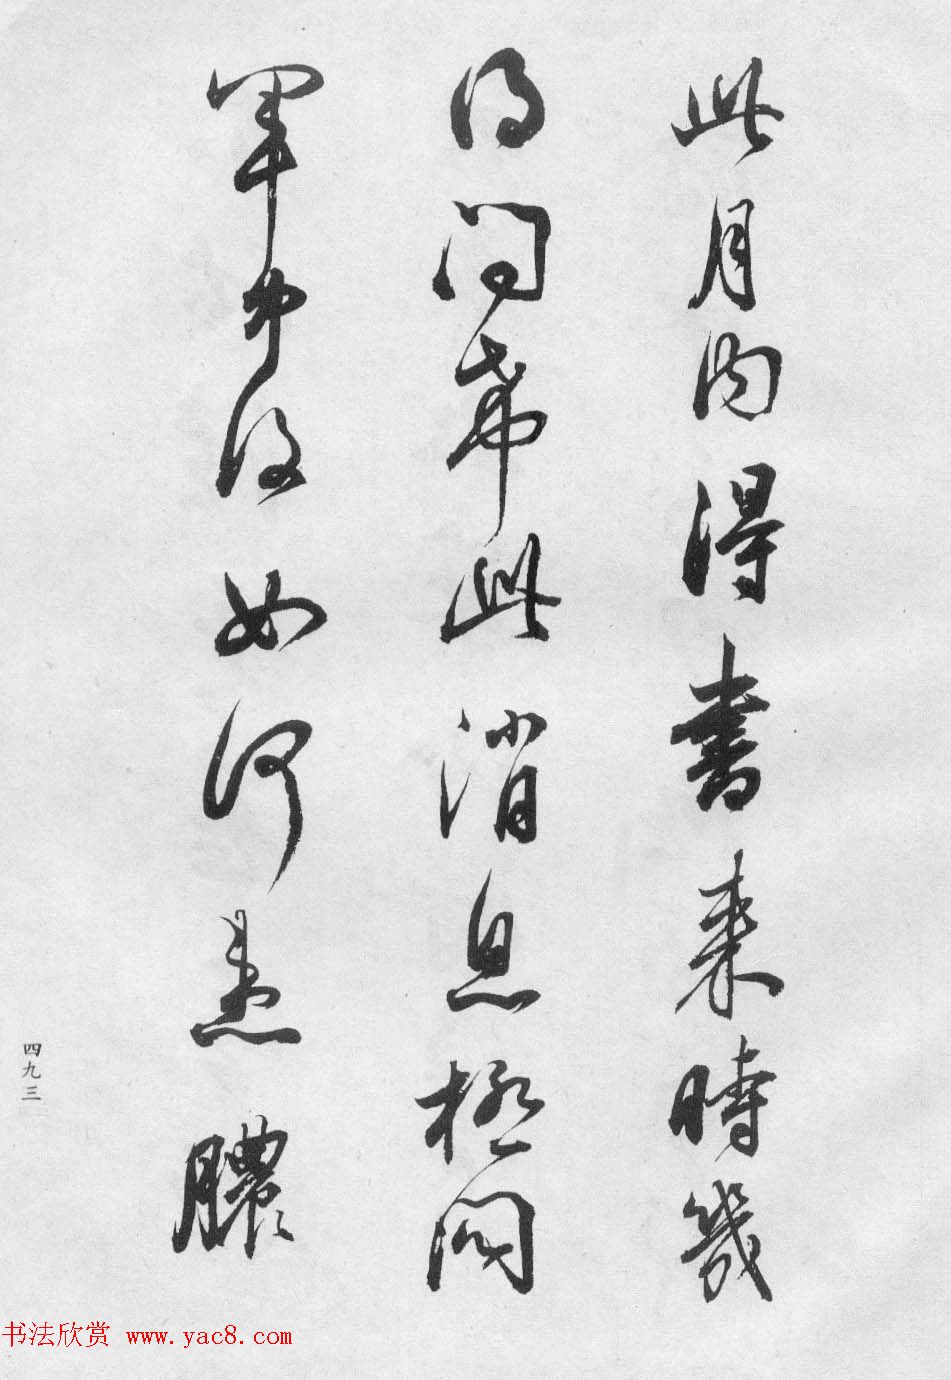 此月内得書来時幾
得问希此消息極悶
軍中後如何患膿
四九三
书法欣赏 www.yac8.com